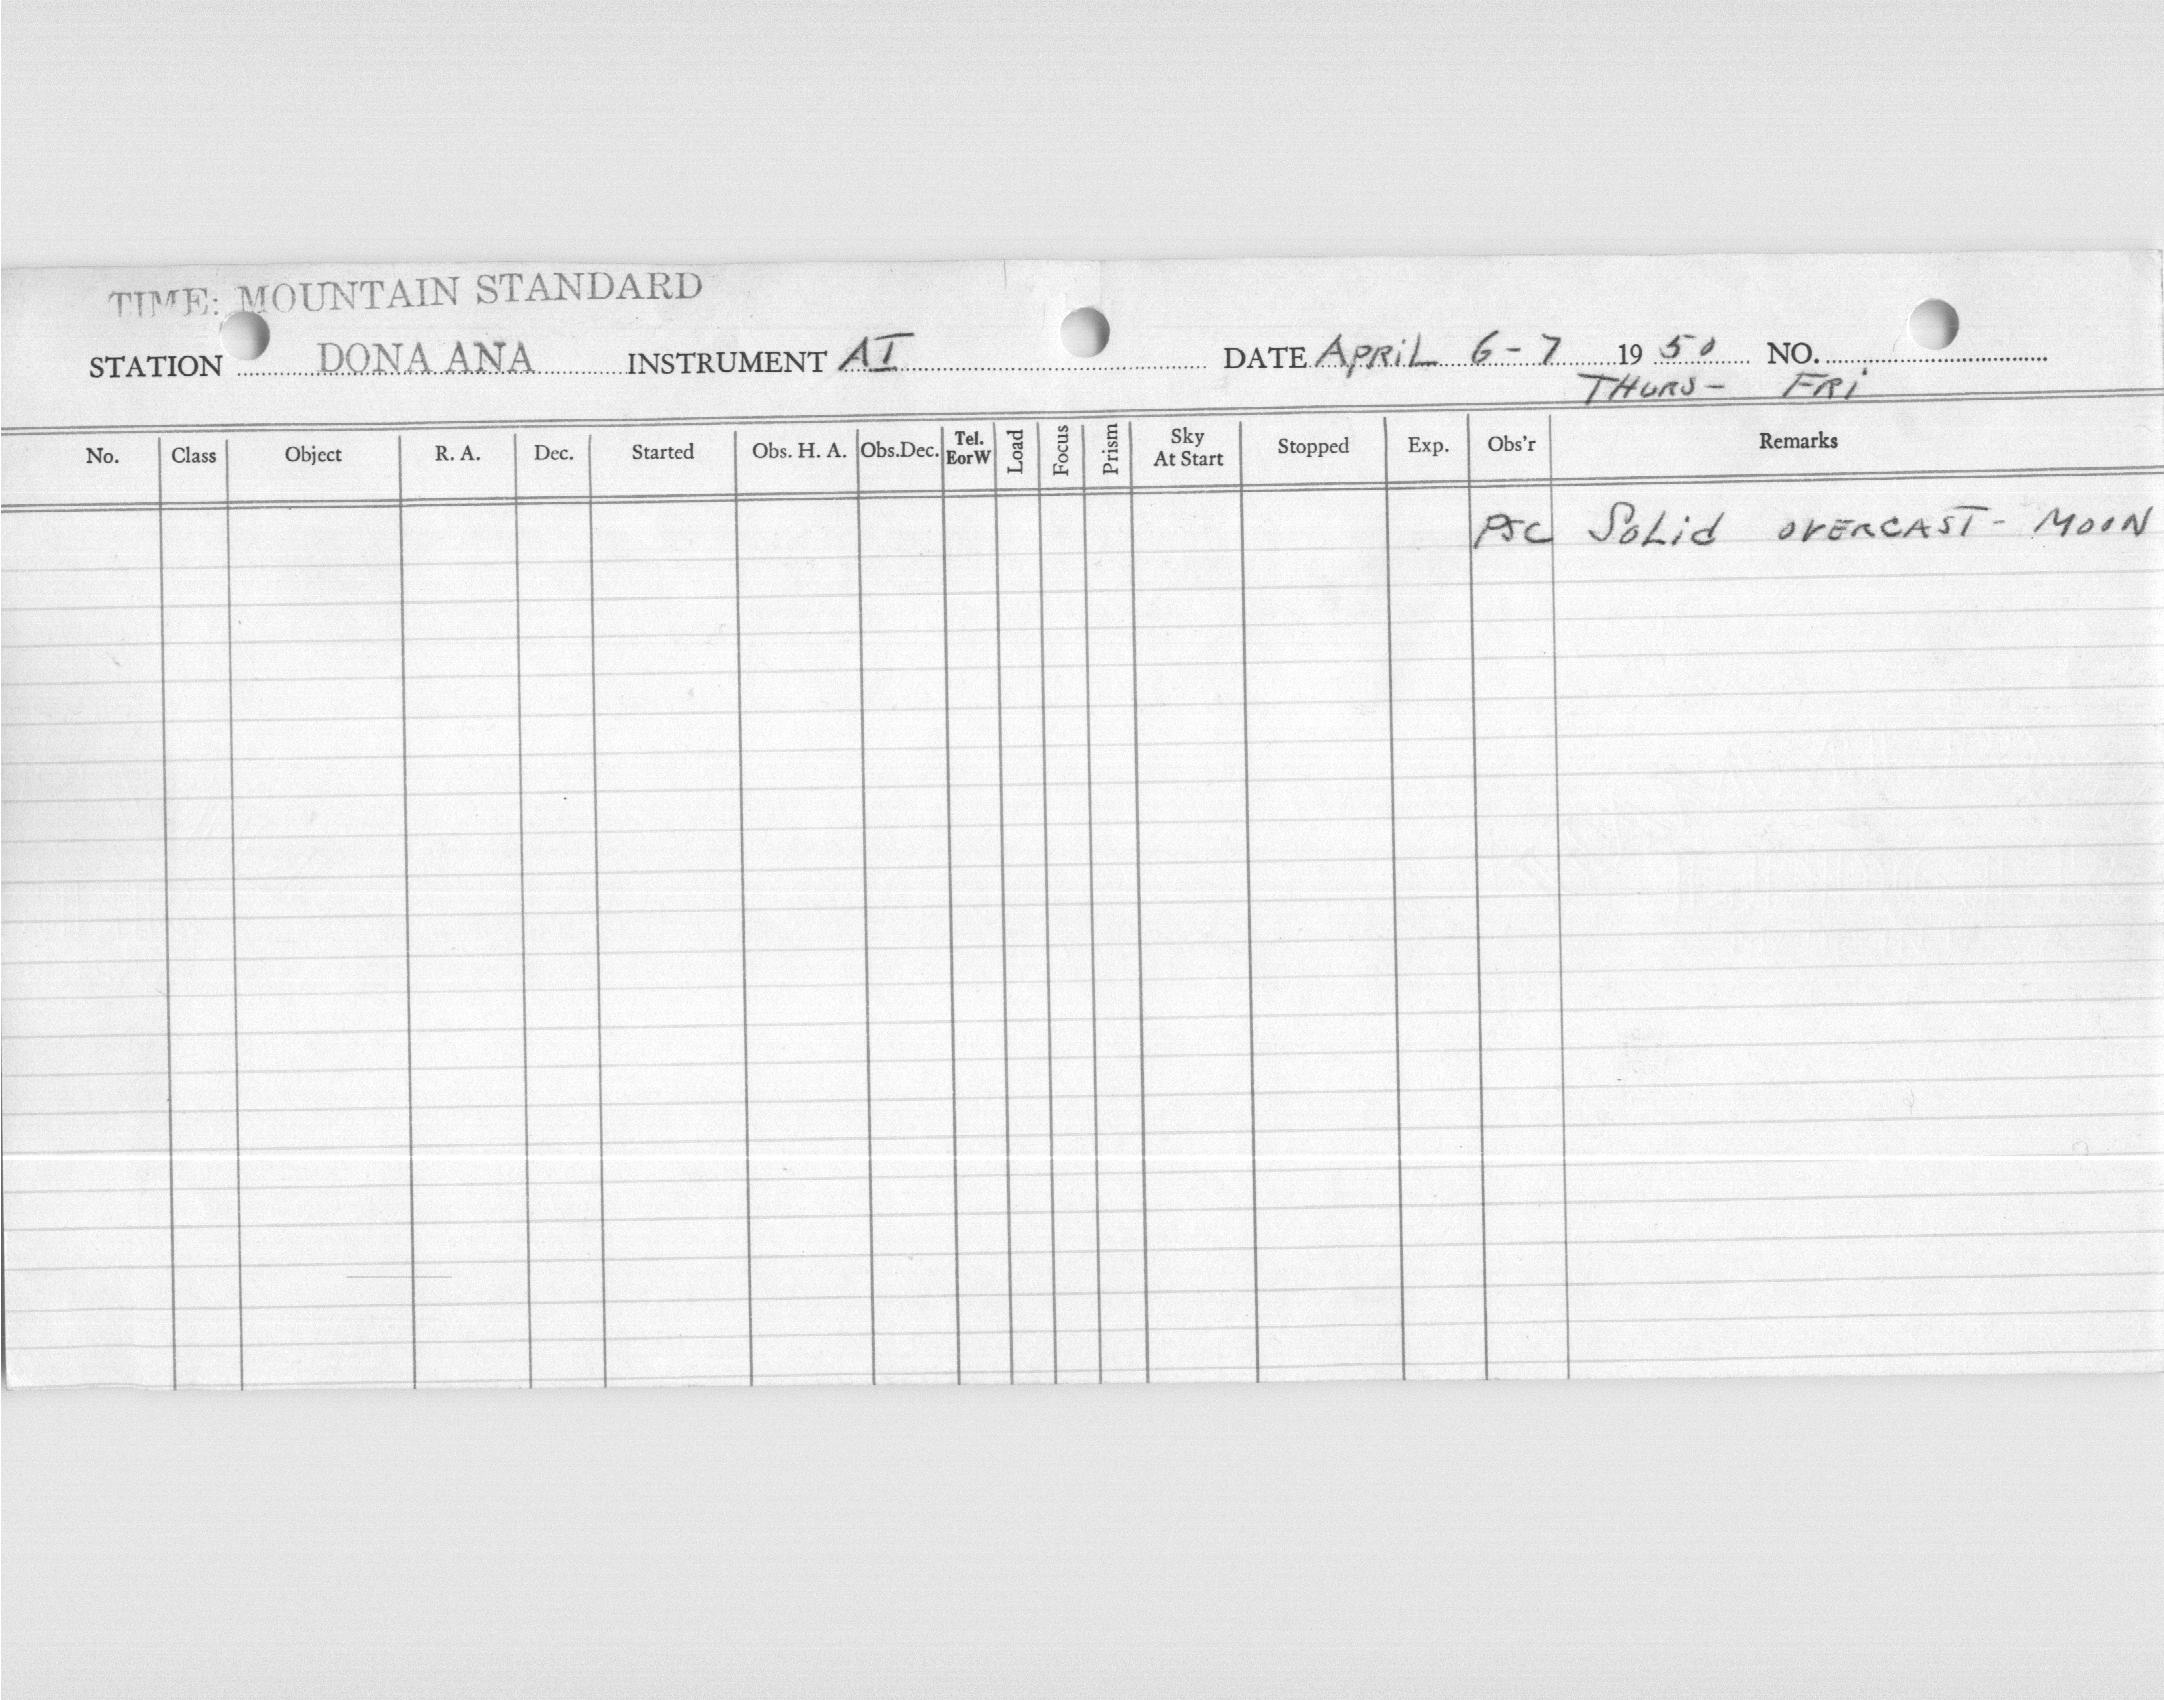 TIME: MOUNTAIN STANDARD
STATION DONA ANA INSTRUMENT AI DATE APRIL 6-7 1950 NO.
THURS- FRI
No. Class Object R. A. Dec. Started Obs. H. A. Obs.Dec. Tel. EorW Load Focus Prism Sky At Start Stopped Exp. Obs'r Remarks
Solid OVERCAST - MOON